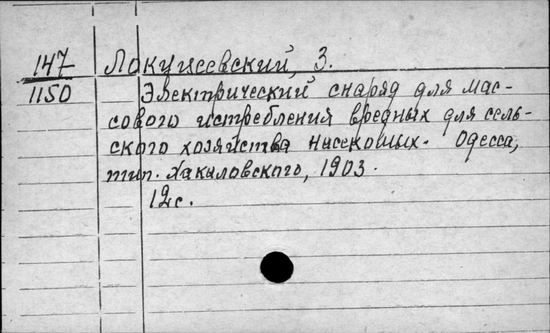 147
1150
Локушевский, З.
Электрический снаряд для мас-
сового истребления вредных для сель-
ского хозяйства насекомых. Одесса,
тип. Хакаловского, 1903.
12с.